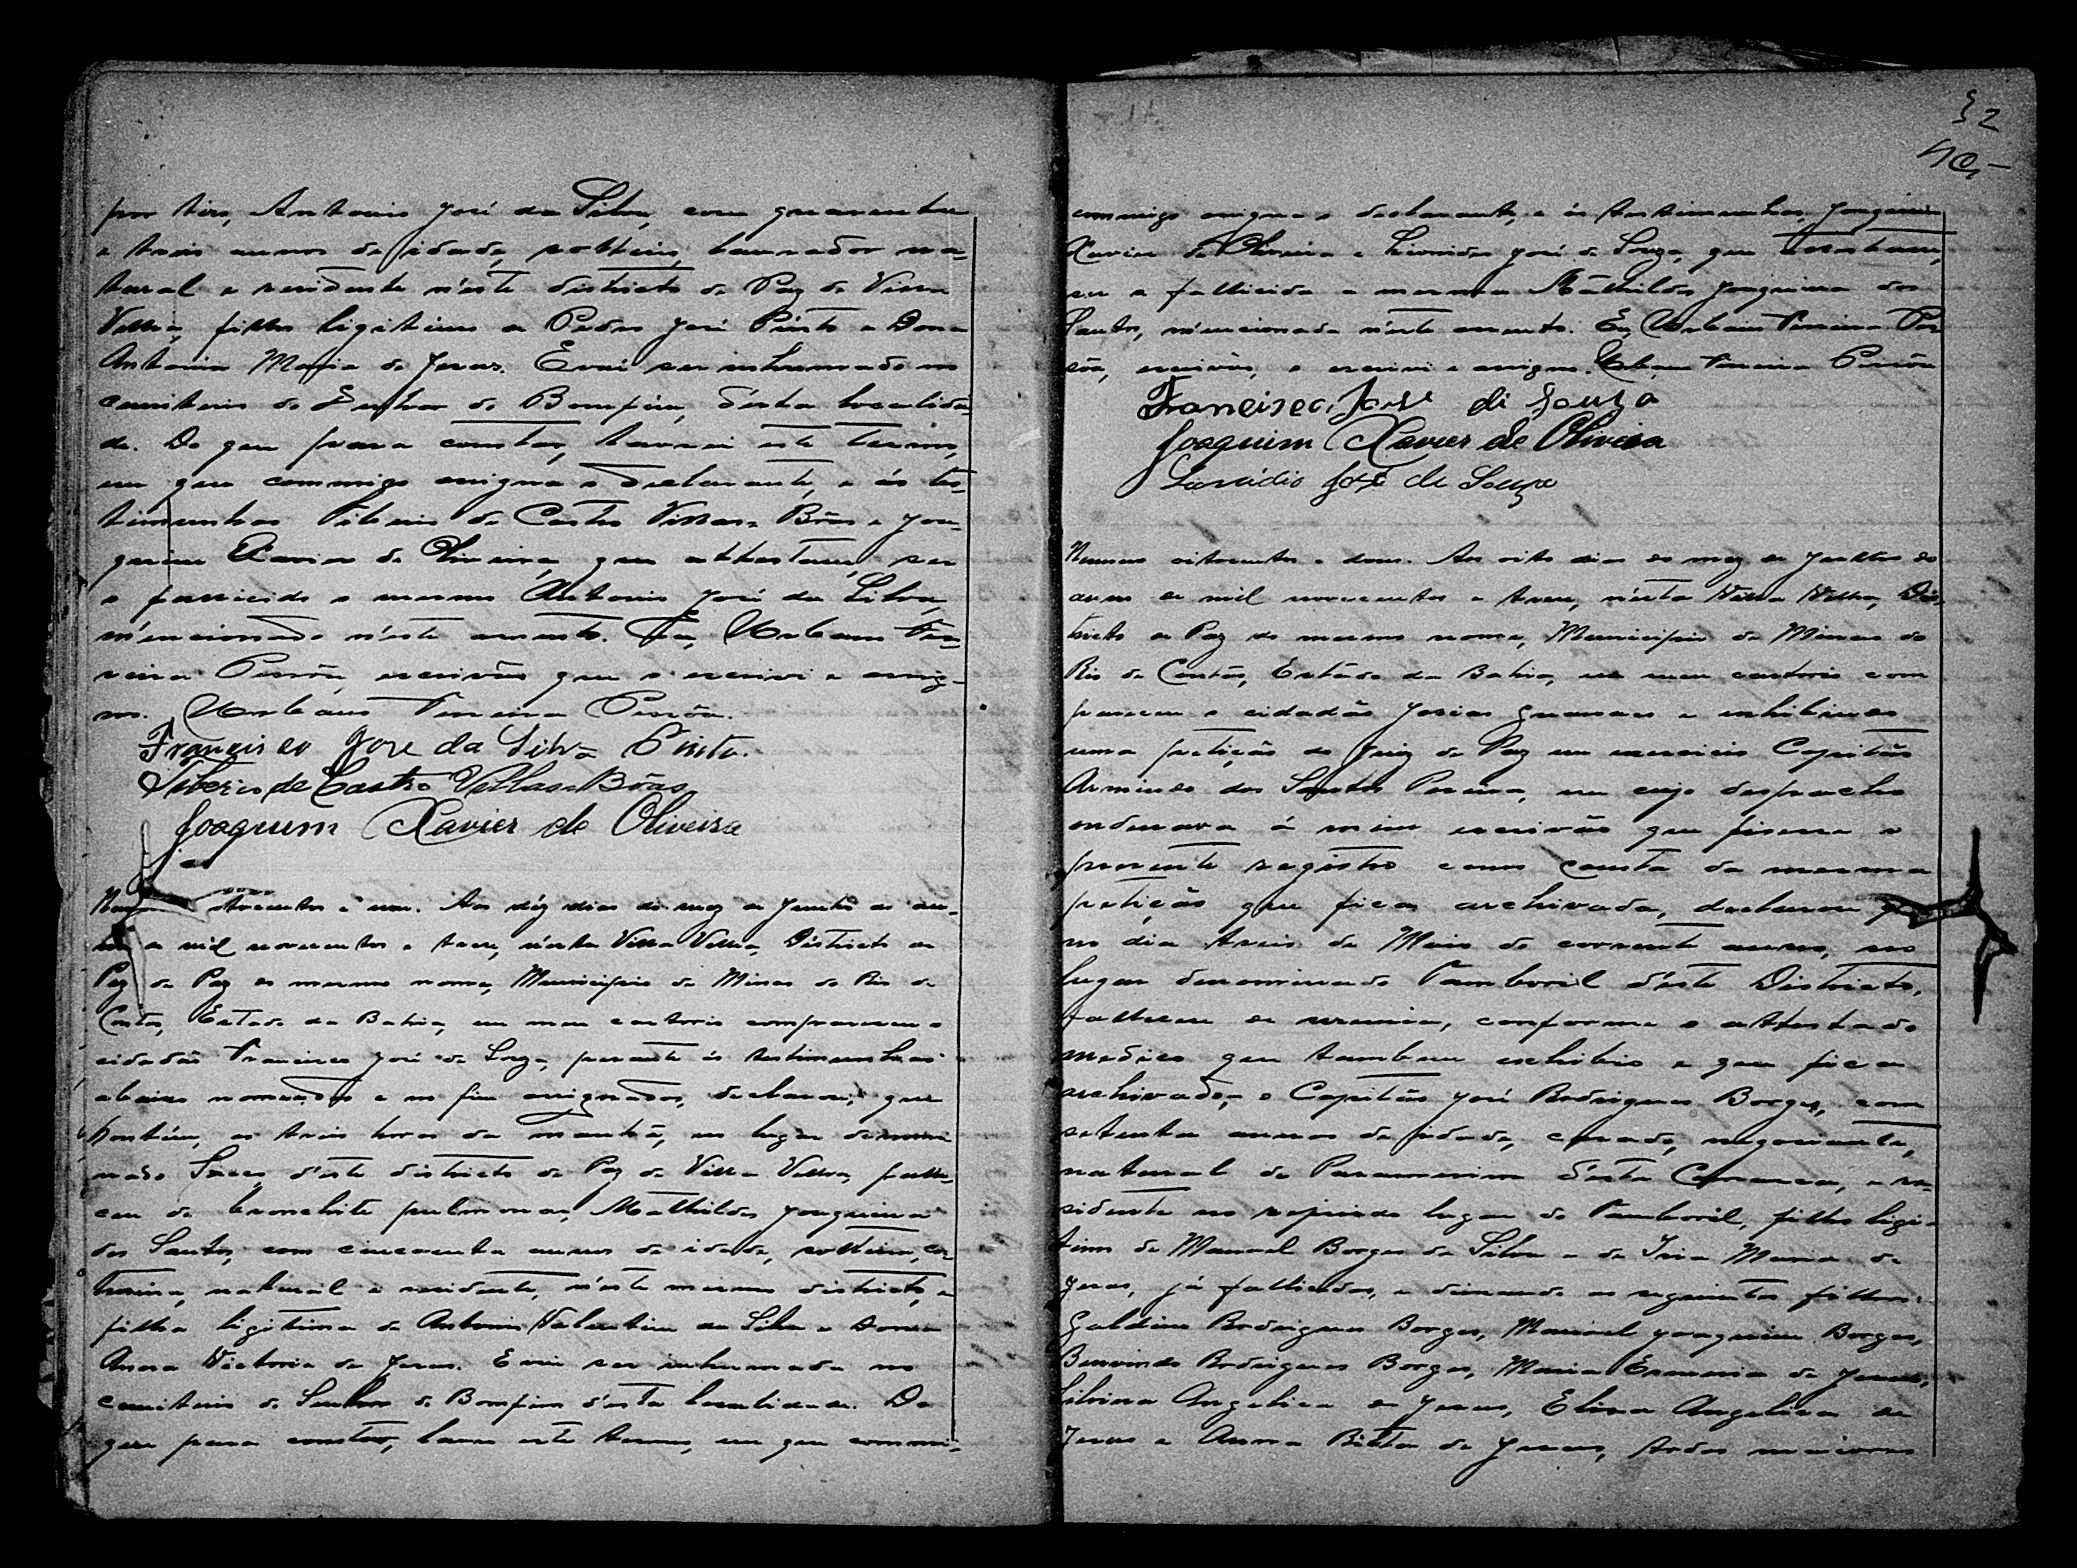 por tiro, Antonio José da Silva, com quarenta
e treis annos de idade, solteiro, lavrador na-
tural e residente n'este districto de Paz de Villa
Velha, filho ligitimo de Pedro José Pinto e Dona
Antonia Maria de Jesus. E vai ser inhumado no
cemiterio do Senhor do Bomfim, d'esta localida-
de. Do que para constar, lavrei este termo,
em que commigo assigna o declarante, e ás tes-
timunhas Tiberio de Castro Villas-Bôas e Joa-
quim Xavier de Oliveira, que attestam, ser
o fallicido o mesmo Antonio José da Silva,
mencionado n'este assento. Eu, Urbano Fer-
reira Pessôa, escrivão que o escrevi e assig-
no. Urbano Ferreira Pessôa.
Francisco José da Silva Pinto.
Tiberio de Castro Villas-Bôas
Joaquim Xavier de Oliveira
trecentos e um. Aos déz dias do mez de Junho do an-
no de mil novecentos e treze, n'esta Villa Velha, Districto de
Paz de Paz do mesmo nome, Municipio de Minas do Rio de
Contas, Estado da Bahia, em meu cartorio compareceu o
cidadão Francisco José de Souza, perante ás testimunhas
abaixo nomeadas e no fim assignados, declarou, que
hontém, as treis horas da manhã, no lugar denomi-
nado d'este districto de Paz de Villa Velha, falle-
ceu de bronchite pulmonar, Mathildes Joaquina
dos Santos, com cincoenta annos de idade, solteira, cos-
tureira, natural e residente, n'este mesmo districto, e
filha ligitima de Antonio Valentim da Silva e Dona
Anna Victoria de Jesus. E vai ser inhumada no
cemiterio do Senhor do Bomfim d'esta localidade. Do
que para constar, lavro este termo, em que commi-
32
40
commigo assigna o declarante, e ás testimunhas Joaquim
Xavier de Oliveira e Leonidio José de Souza, que attestam,
ser a fallicida a mesma Mathildes Joaquina dos
Santos, mencionada n'este assento. Eu, Urbano Ferreira Pes-
sôa, escrivão, o escrevi e assigno. Urbano Ferreira Pessôa
Francisco José di Souza
Joaquim Xavier de Oliveira
José de Souza
Numero oitocentos e dous. Aos oito dias do mez de Julho do
anno de mil novecentos e treze, n'esta Villa Velha, Dis-
tricto de Paz do mesmo nome, Municipio de Minas do
Rio de Contas, Estado da Bahia, em meu cartorio com-
pareceu o cidadão Josias e exhibindo
uma petição do Juiz de Paz em exercicio Capitão
Arminio dos Santos Pereira, em cujo despacho
ordenava á mim escrivão que fizesse o
prezente registro como consta da mesma
petição que fica archivada, declarou que
no dia treis de Maio do corrente anno, no
lugar denominado Tamboril d'este Districto,
falleceu de uremia, conforme o attestado
medico que tambem exhibio e que fica
archivado, o Capitão José Rodrigues Borges, com
setenta annos de idade, casado, negociante,
natural de Paramirim d'esta Comarca, e re-
sidente no referido lugar do Tamboril, filho ligi-
timo de Manoel Borges da Silva e de Iria Maria de
Jesus, já fallicidos, e deixando os seguintes filhos:
Galdino Rodrigues Borges, Manoel Joaquim Borges,
Bemvindo Rodrigues Borges, Maria de Jesus,
Silvina Angelica de Jesus, Elina Angelica de
Jesus e Anna Rita de Jesus, todos maiores